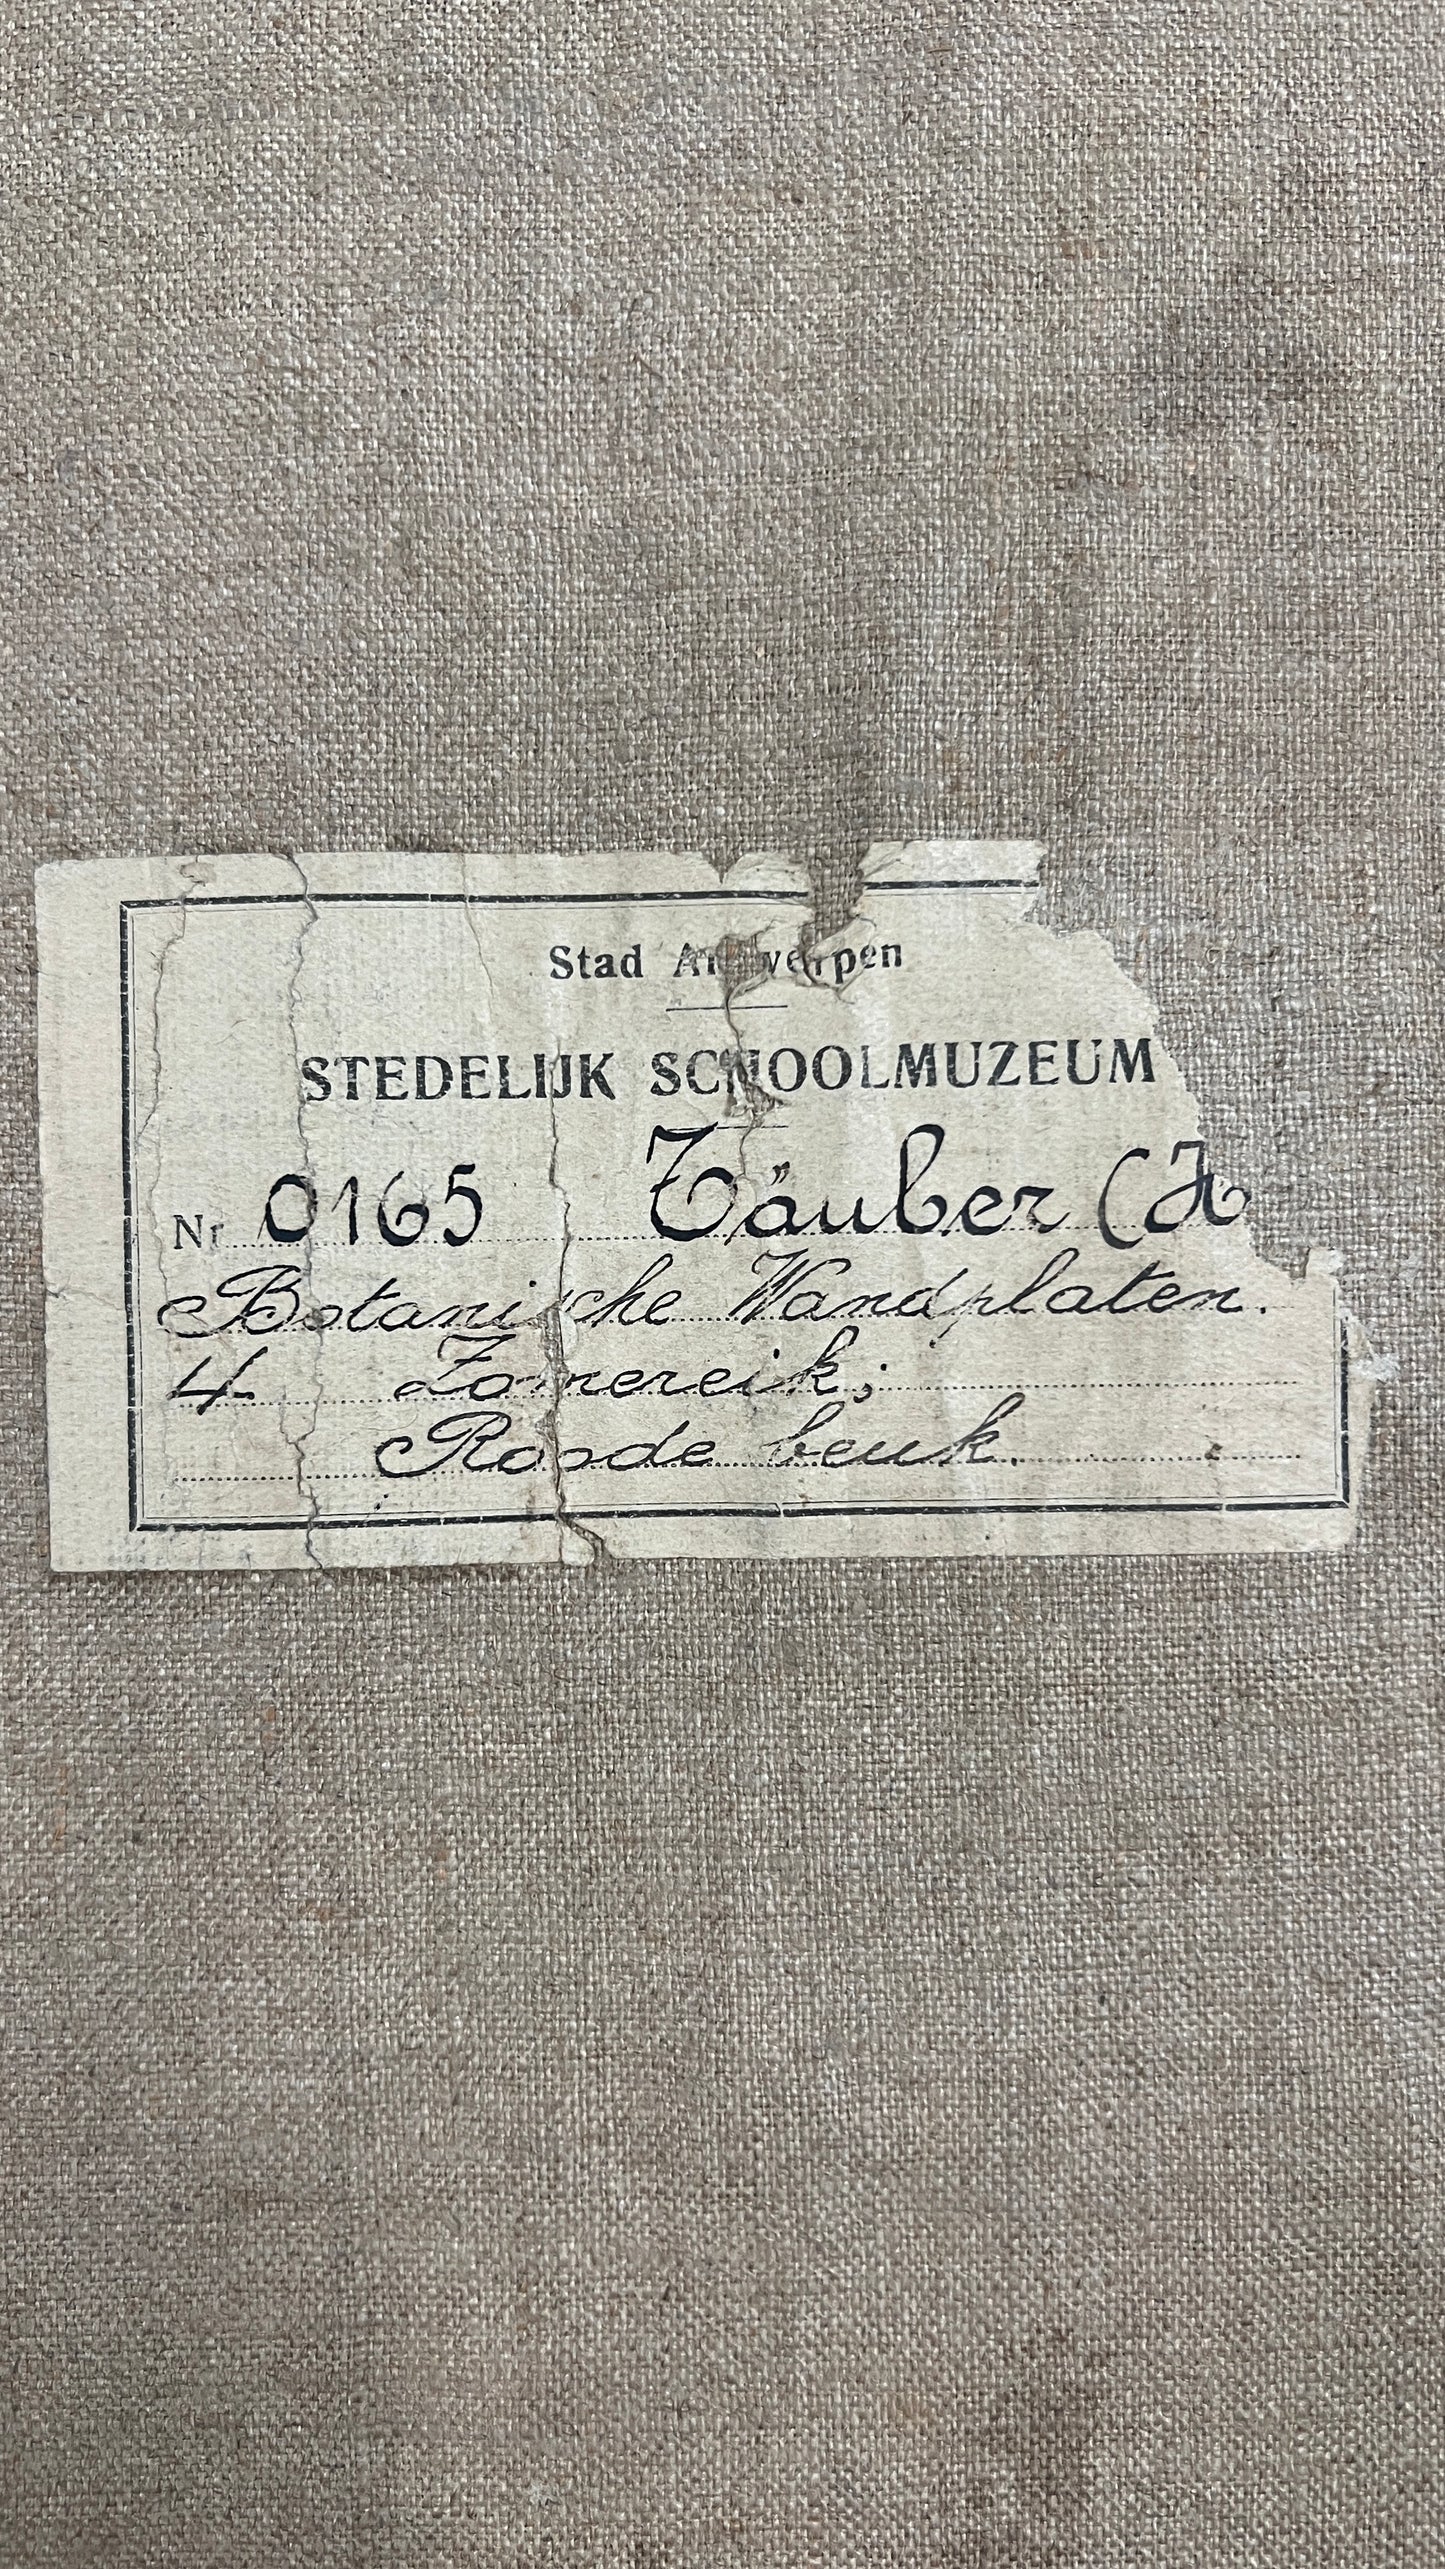 Stad Antwerpen
STEDELIJK SCHOOLMUZEUM
Nr 0165 Täuber (H
Botanische Wandplaten.
4 Zomereik;
Roode beuk.